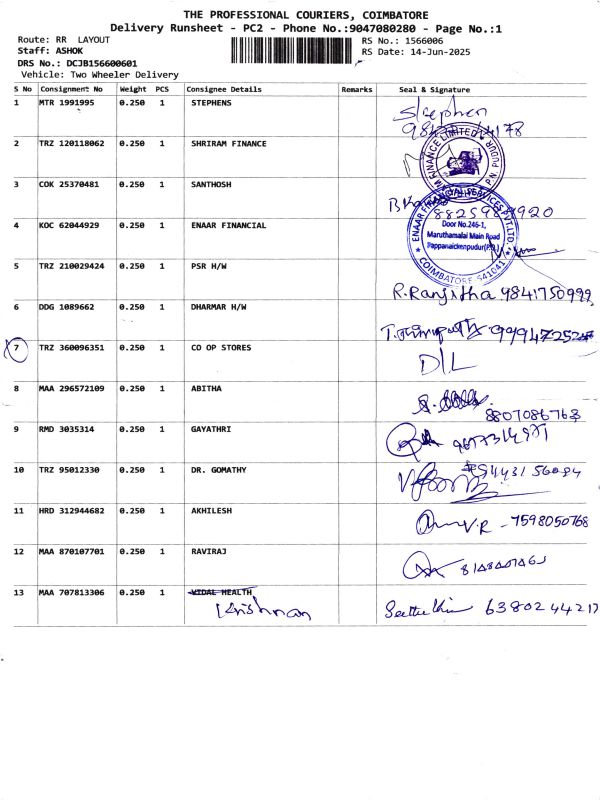 THE PROFESSIONAL COURIERS, COIMBATORE
Delivery Runsheet - PC2 - Phone No.:9047080280 - Page No.:1
Route: RR LAYOUT
RS No.: 1566006
Staff: ASHOK
RS Date: 14-Jun-2025
DRS No.: DCJB156600601
Vehicle: Two Wheeler Delivery
S No Consignment No Weight PCS Consignee Details Remarks Seal & Signature
1 MTR 1991995 0.250 1 STEPHENS Stephen
2 TRZ 120118062 0.250 1 SHRIRAM FINANCE
FINANCE LIMITED
3 COK 25370481 0.250 1 SANTHOSH
4 KOC 62044929 0.250 1 ENAAR FINANCIAL
ENAAR FINANCIAL SERVICES PVT.LTD.
Door No.246-1,
Maruthamalai Main Road
Pappanaickenpudur(P.O.)
COIMBATORE 641041
5 TRZ 210029424 0.250 1 PSR H/W R.Ranjitha 9841750999
6 DDG 1089662 0.250 1 DHARMAR H/W
7 TRZ 360096351 0.250 1 CO OP STORES D/L
8 MAA 296572109 0.250 1 ABITHA 8807086763
9 RMD 3035314 0.250 1 GAYATHRI
10 TRZ 95012330 0.250 1 DR. GOMATHY
11 HRD 312944682 0.250 1 AKHILESH V.R - 7598050768
12 MAA 870107701 0.250 1 RAVIRAJ
13 MAA 707813306 0.250 1 VIDAL HEALTH 6380244217
Krishnan